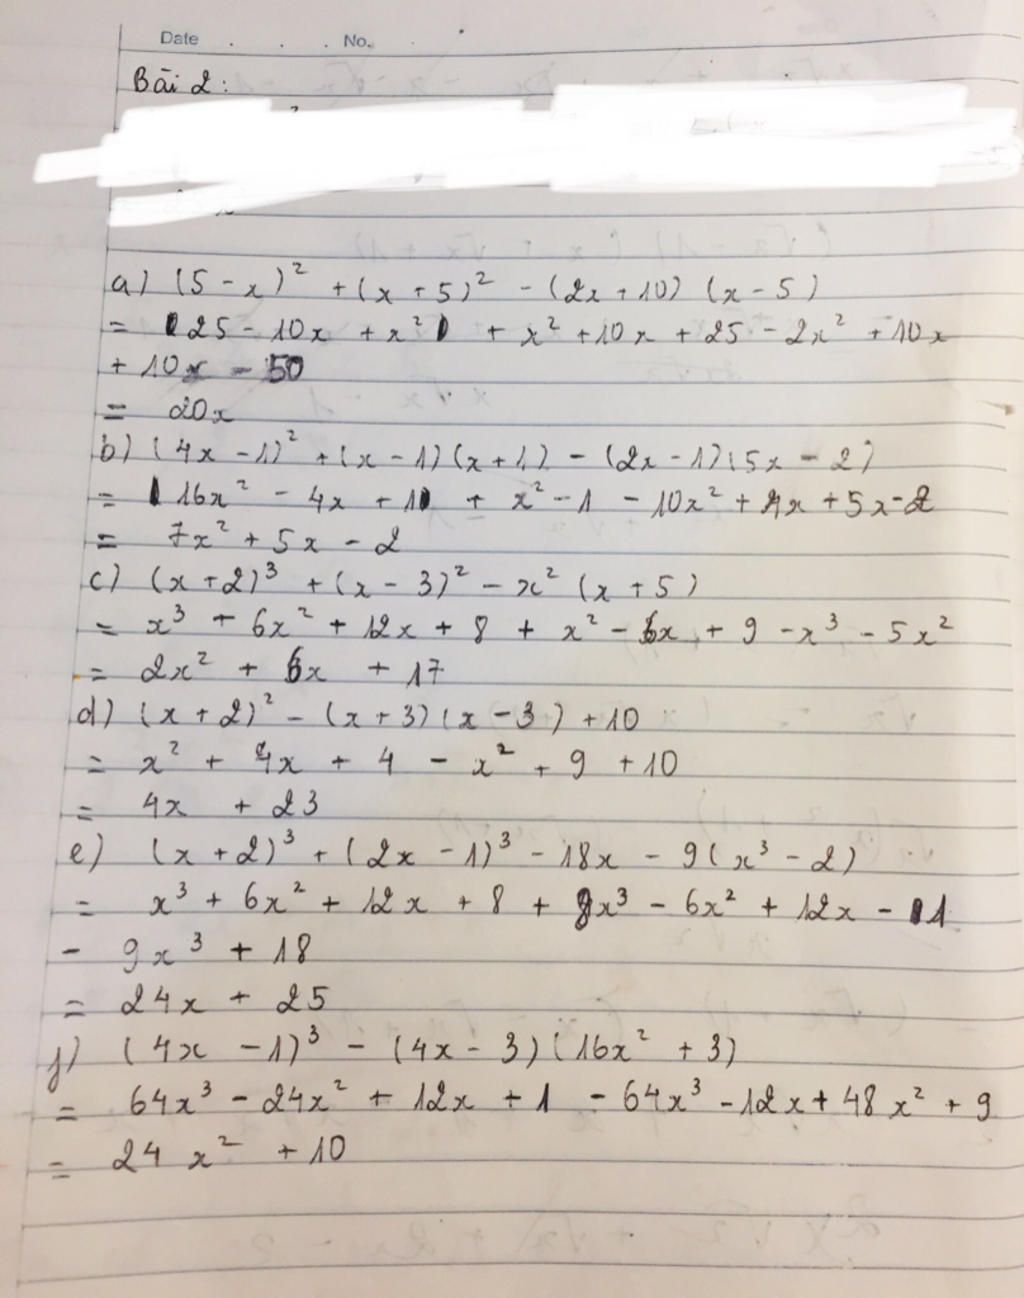 Date . . . No.
Bài 2:
a) (5 - x)² + (x + 5)² - (2x + 10) (x - 5)
= 25 - 10x + x² + x² + 10x + 25 - 2x² + 10x
+ 10x - 50
= 20x
b) (4x - 1)² + (x - 1) (x + 1) - (2x - 1) (5x - 2)
= 16x² - 4x + 1 + x² - 1 - 10x² + 4x + 5x - 2
= 7x² + 5x - 2
c) (x + 2)³ + (x - 3)² - x² (x + 5)
= x³ + 6x² + 12x + 8 + x² - 6x + 9 - x³ - 5x²
= 2x² + 6x + 17
d) (x + 2)² - (x + 3) (x - 3) + 10
= x² + 4x + 4 - x² + 9 + 10
= 4x + 23
e) (x + 2)³ + (2x - 1)³ - 18x - 9 (x³ - 2)
= x³ + 6x² + 12x + 8 + 8x³ - 6x² + 12x - 1
- 9x³ + 18
= 24x + 25
f) (4x - 1)³ - (4x - 3) (16x² + 3)
= 64x³ - 24x² + 12x + 1 - 64x³ - 12x + 48x² + 9
= 24x² + 10